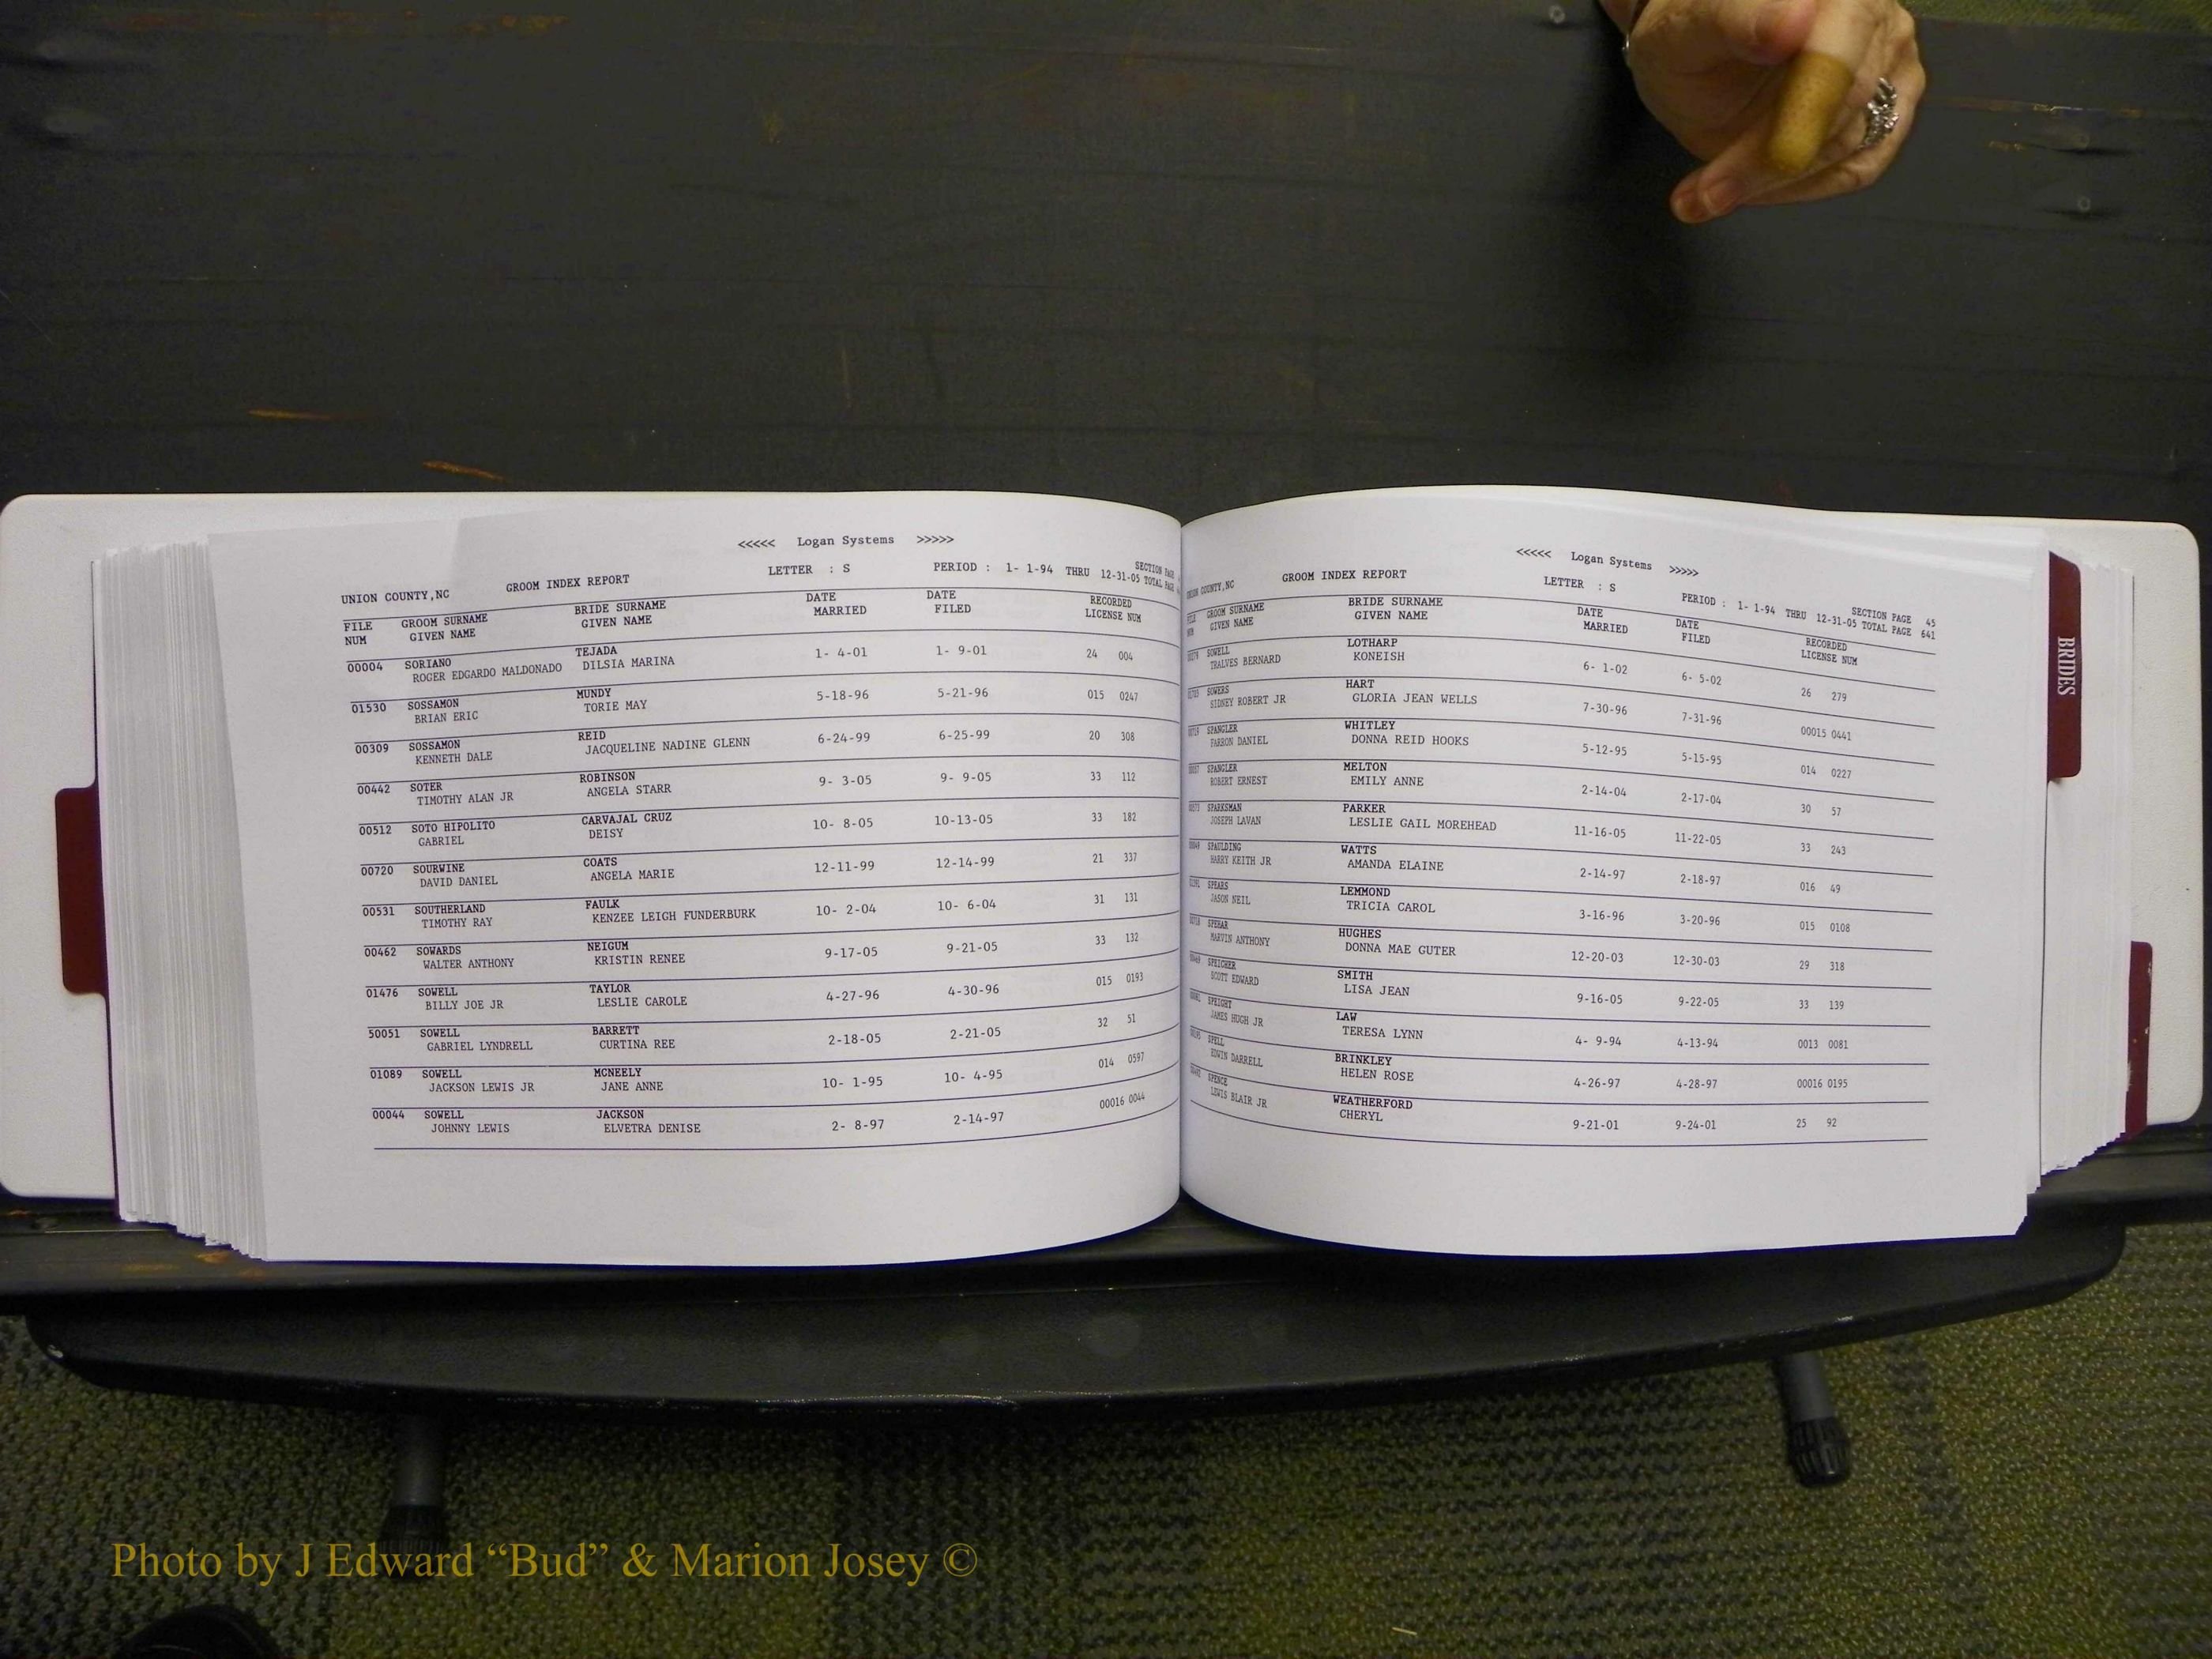 <<<<< Logan Systems >>>>>
UNION COUNTY,NC GROOM INDEX REPORT LETTER : S PERIOD : 1- 1-94 THRU 12-31-05 SECTION PAGE
TOTAL PAGE
FILE GROOM SURNAME BRIDE SURNAME DATE DATE RECORDED
NUM GIVEN NAME GIVEN NAME MARRIED FILED LICENSE NUM
00004 SORIANO TEJADA 1- 4-01 1- 9-01 24 004
ROGER EDGARDO MALDONADO DILSIA MARINA
01530 SOSSAMON MUNDY 5-18-96 5-21-96 015 0247
BRIAN ERIC TORIE MAY
00309 SOSSAMON REID 6-24-99 6-25-99 20 308
KENNETH DALE JACQUELINE NADINE GLENN
00442 SOTER ROBINSON 9- 3-05 9- 9-05 33 112
TIMOTHY ALAN JR ANGELA STARR
00512 SOTO HIPOLITO CARVAJAL CRUZ 10- 8-05 10-13-05 33 182
GABRIEL DEISY
00720 SOURWINE COATS 12-11-99 12-14-99 21 337
DAVID DANIEL ANGELA MARIE
00531 SOUTHERLAND FAULK 10- 2-04 10- 6-04 31 131
TIMOTHY RAY KENZEE LEIGH FUNDERBURK
00462 SOWARDS NEIGUM 9-17-05 9-21-05 33 132
WALTER ANTHONY KRISTIN RENEE
01476 SOWELL TAYLOR 4-27-96 4-30-96 015 0193
BILLY JOE JR LESLIE CAROLE
50051 SOWELL BARRETT 2-18-05 2-21-05 32 51
GABRIEL LYNDRELL CURTINA REE
01089 SOWELL MCNEELY 10- 1-95 10- 4-95 014 0597
JACKSON LEWIS JR JANE ANNE
00044 SOWELL JACKSON 2- 8-97 2-14-97 00016 0044
JOHNNY LEWIS ELVETRA DENISE
<<<<< Logan Systems >>>>>
UNION COUNTY,NC GROOM INDEX REPORT LETTER : S PERIOD : 1- 1-94 THRU 12-31-05 SECTION PAGE 45
TOTAL PAGE 641
FILE GROOM SURNAME BRIDE SURNAME DATE DATE RECORDED
NUM GIVEN NAME GIVEN NAME MARRIED FILED LICENSE NUM
SOWELL LOTHARP 6- 1-02 6- 5-02 26 279
TRALVES BERNARD KONEISH
SOWERS HART 7-30-96 7-31-96 00015 0441
SIDNEY ROBERT JR GLORIA JEAN WELLS
SPANGLER WHITLEY 5-12-95 5-15-95 014 0227
FARRON DANIEL DONNA REID HOOKS
SPANGLER MELTON 2-14-04 2-17-04 30 57
ROBERT ERNEST EMILY ANNE
SPARKSMAN PARKER 11-16-05 11-22-05 33 243
JOSEPH LAVAN LESLIE GAIL MOREHEAD
SPAULDING WATTS 2-14-97 2-18-97 016 49
HARRY KEITH JR AMANDA ELAINE
SPEARS LEMMOND 3-16-96 3-20-96 015 0108
JASON NEIL TRICIA CAROL
SPEHAR HUGHES 12-20-03 12-30-03 29 318
MARVIN ANTHONY DONNA MAE GUTER
SPEICHER SMITH 9-16-05 9-22-05 33 139
SCOTT EDWARD LISA JEAN
SPEIGHT LAW 4- 9-94 4-13-94 0013 0081
JAMES HUGH JR TERESA LYNN
SPELL BRINKLEY 4-26-97 4-28-97 00016 0195
EDWIN DARRELL HELEN ROSE
SPENCE WEATHERFORD 9-21-01 9-24-01 25 92
LEWIS BLAIR JR CHERYL
BRIDES
Photo by J Edward “Bud” & Marion Josey ©